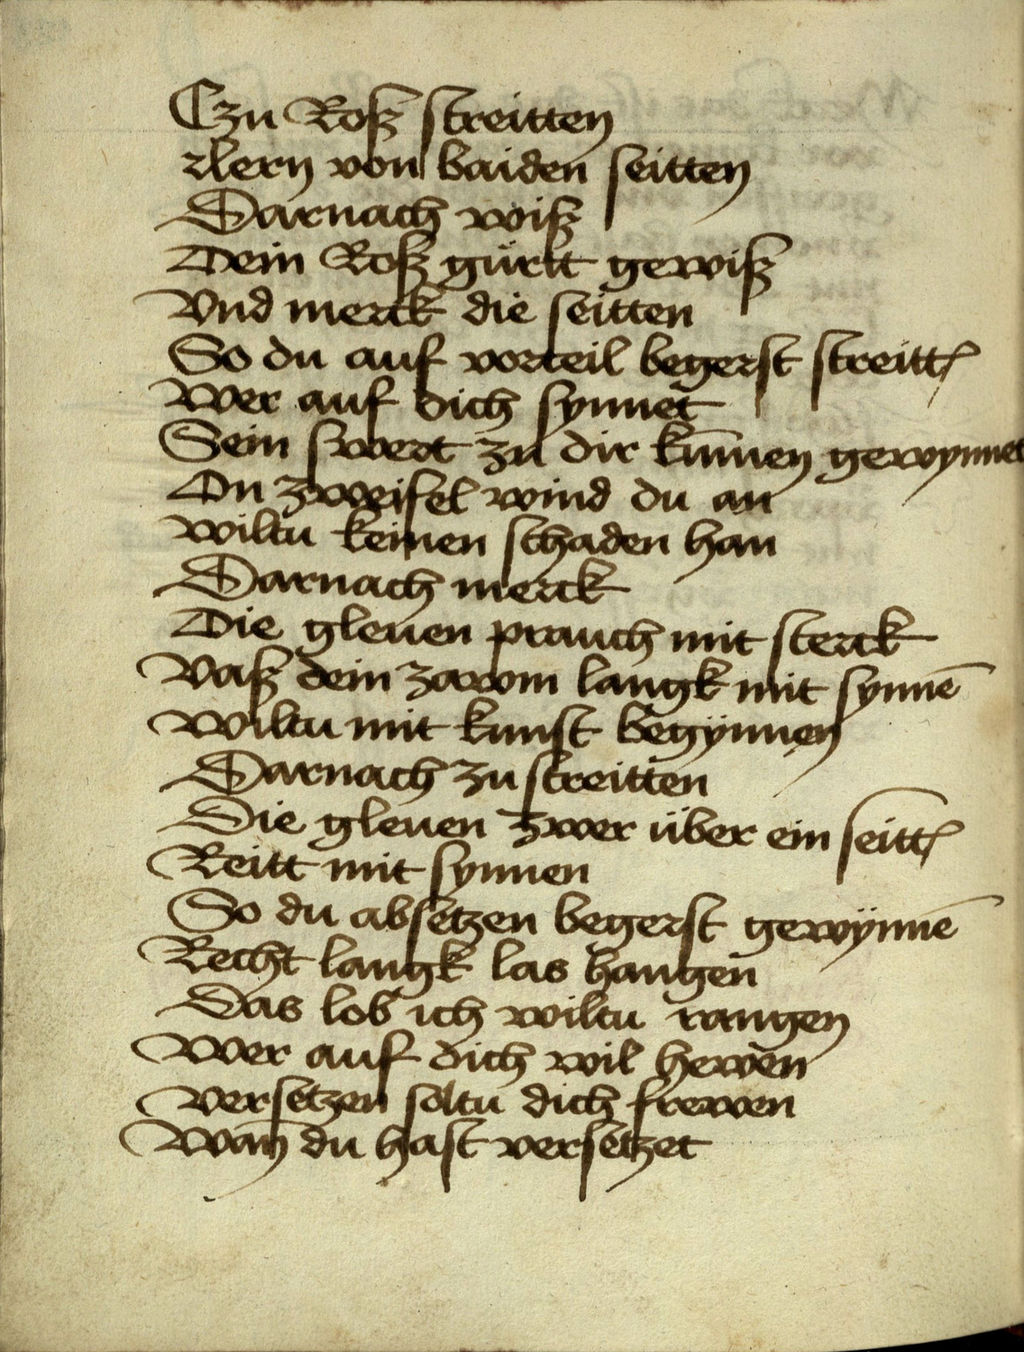 Czu Roß streitten
rlern von baiden seitten
Darnach wiß
Dein Roß gürtt gewiß
Vnd merck die seitten
So du auf vorteil begerst streitt
Wer auf dich synnet
Sein swert zu dir kūmen gewynnet
On zweifel wind du an
wiltu keinen schaden han
Darnach merck
Die gleuen prauch mit sterck
Vaß dein zawm langk mit synnē
Wiltu mit kunst begynnen
Darnach zu streitten
Die gleuen zwer über ein seitt
Reitt mit synnen
So du absetzen begerst gewÿnnē
Recht langk las hangen
Das lob ich wiltu rangen
Wer auf dich wil hewen
Versetzen soltu dich frewen
Wan̄ du hast versetzet